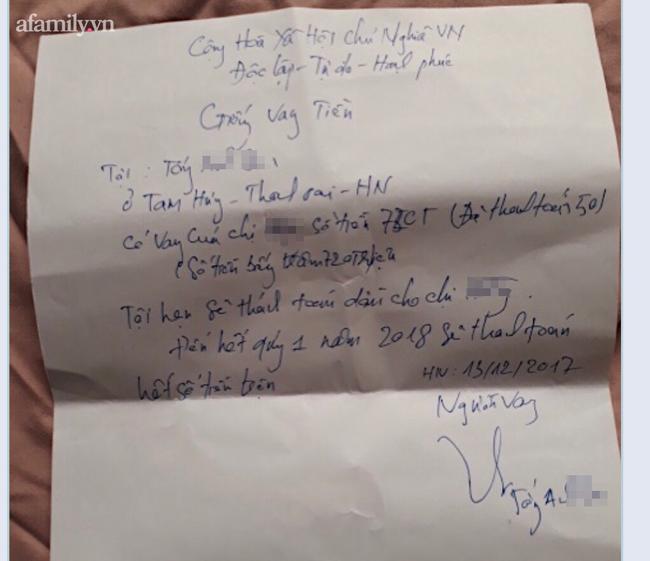 afamily.vn
Cộng Hoà Xã Hội Chủ Nghĩa VN
Độc lập - Tự do - Hạnh phúc
Giấy Vay Tiền
Tôi : Tống
ở Tam Hưng - Thanh Oai - HN
Có vay của chị số tiền (Đã thanh toán 50)
(Số tiền bảy trăm
Tôi hẹn sẽ thanh toán dần cho chị
Đến hết quý 1 năm 2018 sẽ thanh toán
hết số tiền trên
HN : 13/12/2017
Người vay
Tống A